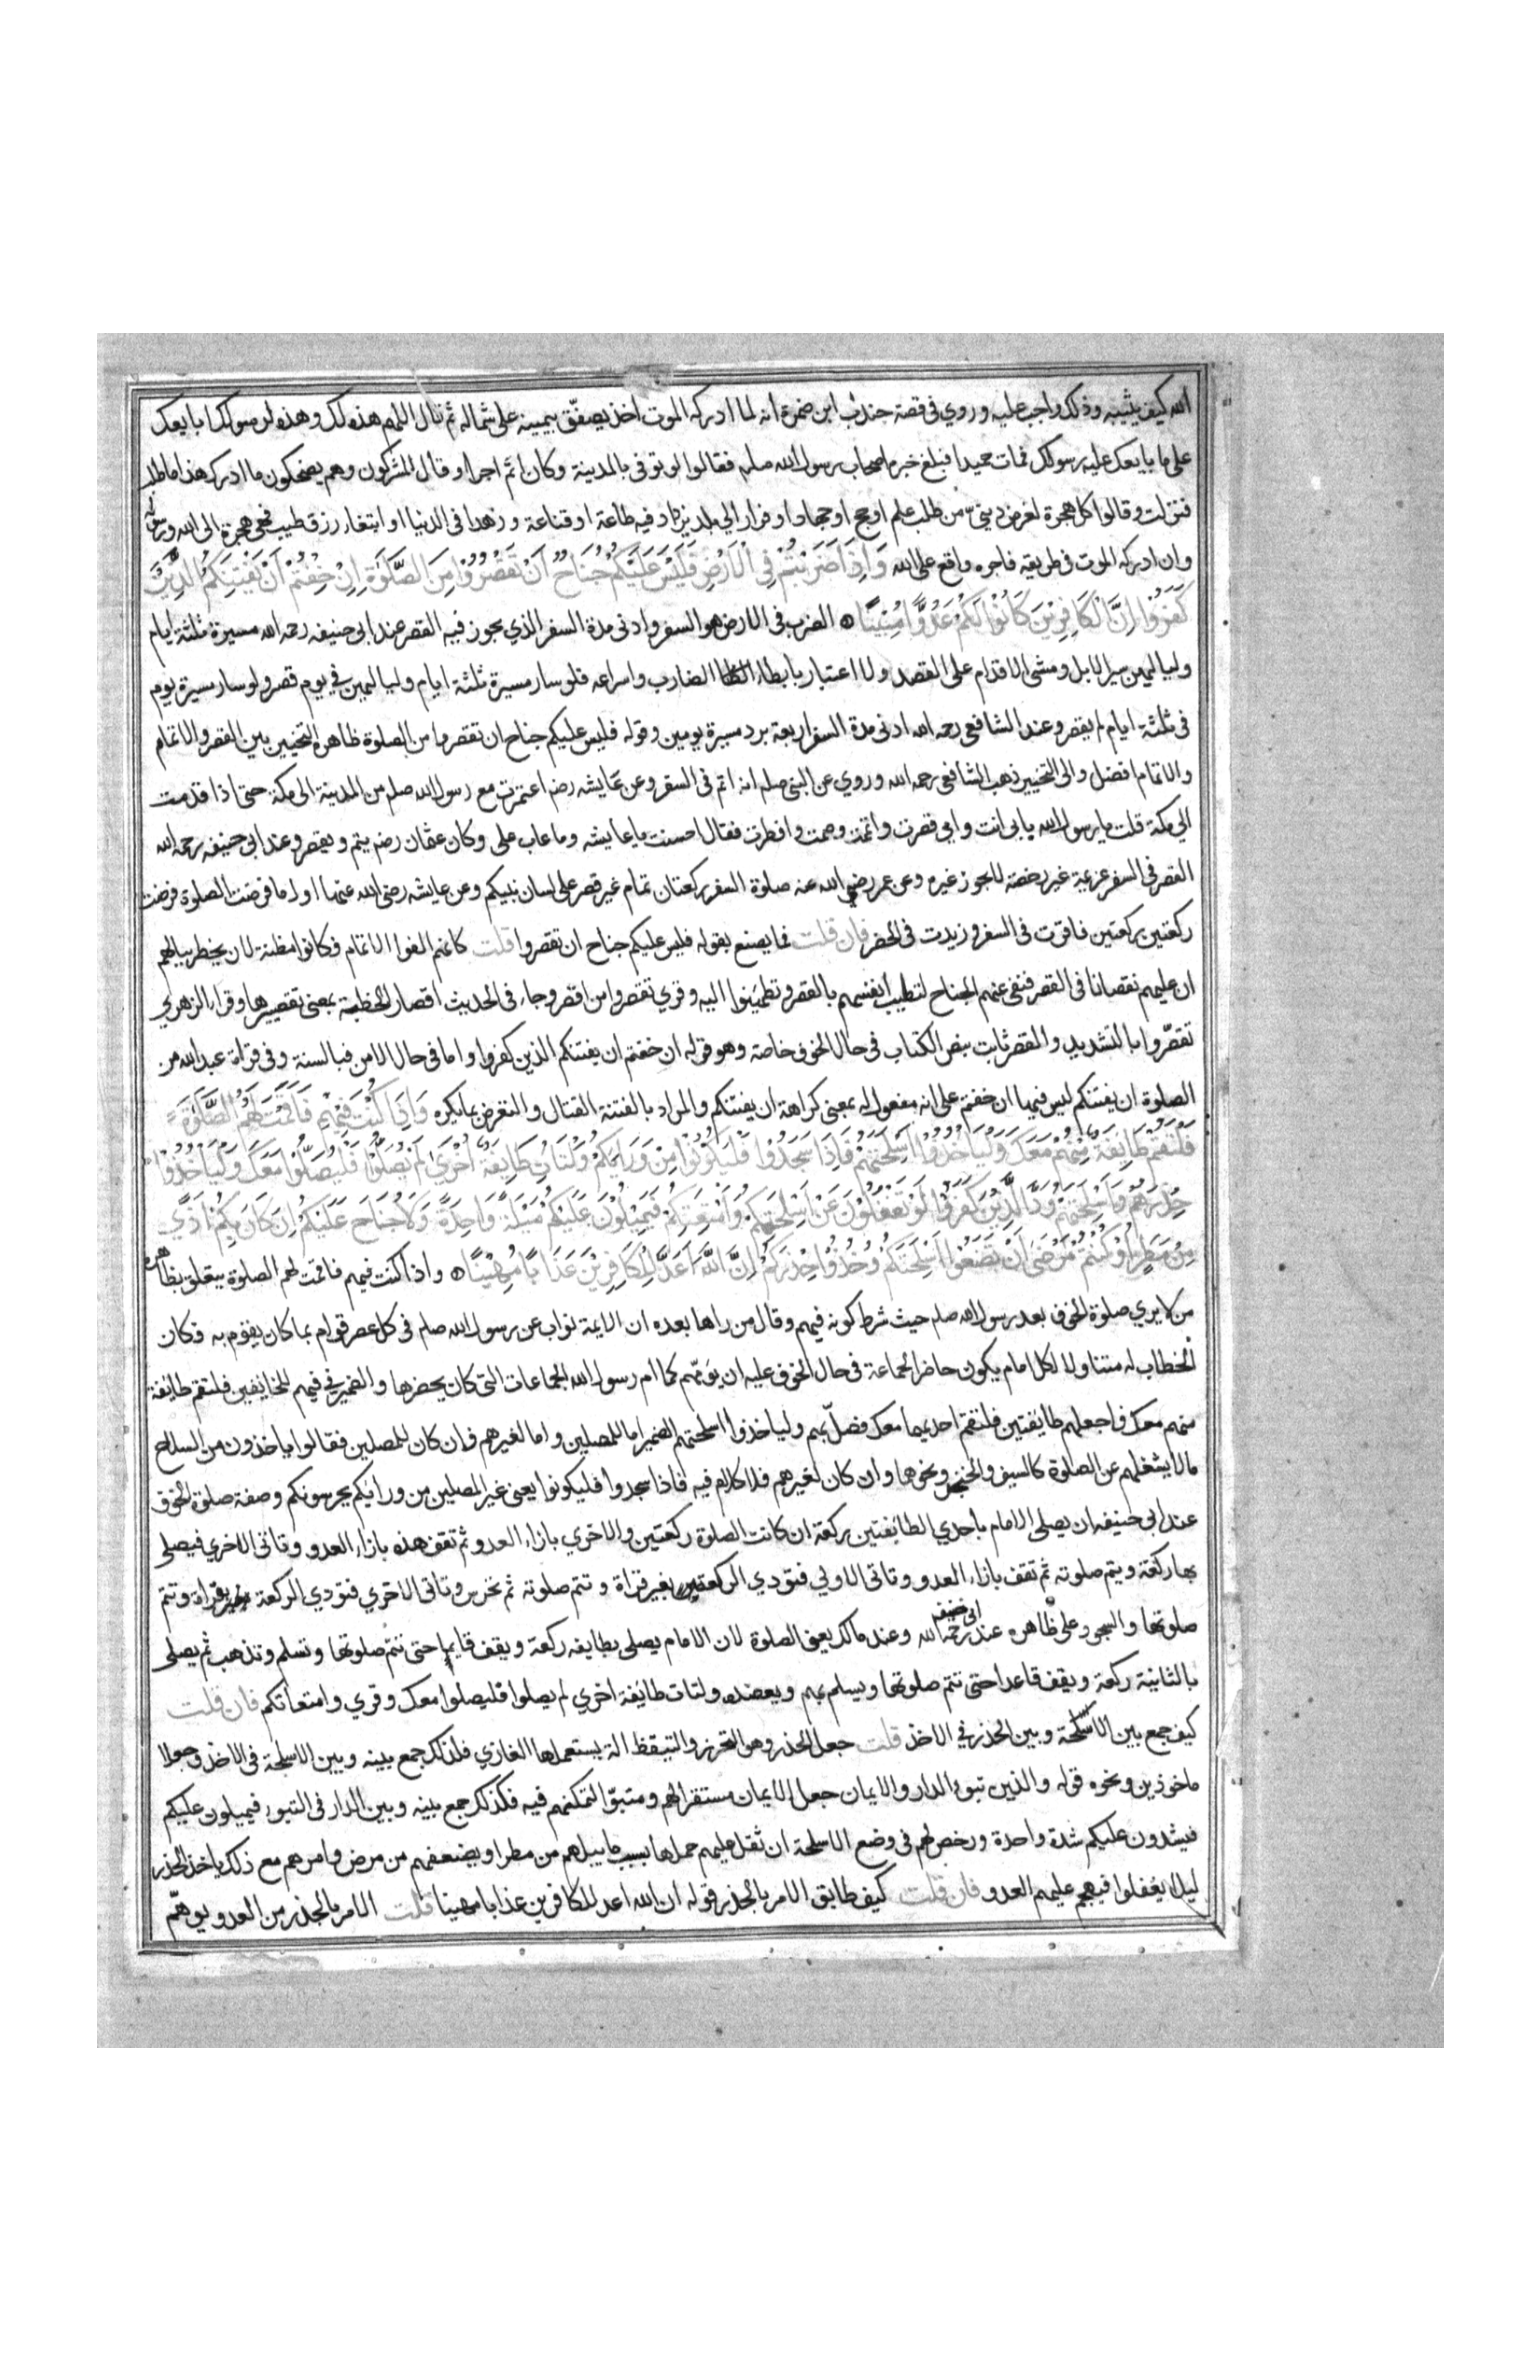 الله كيف يثيبه وذلك واجب عليه وروي في قصة جندب ابن ضمرة انه لما ادركه الموت اخذ يصفّق بيمينه على شماله ثم قال اللهم هذه لك وهذه لرسولك ابايعك
على ما بايعك عليه رسولك فمات حميدا فبلغ خبره اصحاب رسول الله صلم فقالوا لو توفى بالمدينة وكان اتم اجرا وقال المشركون وهم يضحكون ما ادرك هذا ما طلب
فنزلت وقالوا كل هجرة لغرض ديني من طلب علم او حج او جهاد او فرار الي بلد يزداد فيه طاعة او قناعة وزهدا في الدنيا او ابتغاء رزق طيب فهي هجرة الى الله ورسوله
وان ادركه الموت في طريقه فاجره واقع على الله وَاِذَا ضَرَبْتُمْ فِي الْاَرْضِ فَلَيْسَ عَلَيْكُمْ جُنَاحٌ اَنْ تَقْصُرُوْا مِنَ الصَّلوٰةِ اِنْ خِفْتُمْ اَنْ يَفْتِنَكُمُ الَّذِيْنَ
كَفَرُوْا اِنَّ الْكَافِرِيْنَ كَانُوْا لَكُمْ عَدُوًّا مُبِيْنًا الضرب في الارض هو السفر وادنى مدة السفر الذي يجوز فيه القصر عند ابي حنيفه رحمه الله مسيرة ثلثة ايام
ولياليهن سير الابل ومشى الاقدام على القصد ولا اعتبار بابطاء الضارب واسراعه فلو سار مسيرة ثلثة ايام ولياليهن في يوم قصر ولو سار مسيرة يوم
في ثلثة ايام لم يقصر وعند الشافعي رحمه الله ادنى مدة السفر اربعة برد مسيرة يومين وقوله فليس عليكم جناح ان تقصروا من الصلوة ظاهره التخيير بين القصر والاتمام
والاتمام افضل والى التخيير ذهب الشافعي رحمه الله وروي عن النبي صلم انه اتم في السفر وعن عايشه رضم اعتمرت مع رسول الله صلم من المدينة الى مكة حتى اذا قدمت
الي مكة قلت يا رسول الله بابى انت وامي قصرت واتممت وصمت وافطرت فقال احسنت يا عايشه وما عاب على وكان عثمان رضم يتم ويقصر وعند ابي حنيفه رحمه الله
القصر في السفر عزيمة غير رخصة لا يجوز غيره وعن عمر رضي الله عنه صلوة السفر ركعتان تمام غير قصر على لسان نبيكم وعن عايشه رضي الله عنها اول ما فرضت الصلوة فرضت
ركعتين ركعتين فاقرت في السفر وزيدت في الحضر فان قلت فما يصنع بقوله فليس عليكم جناح ان تقصروا قلت كانهم الفوا الاتمام فكانوا مظنة لان يخطر ببالهم
ان عليهم نقصانا في القصر فنفى عنهم الجناح لتطيب انفسهم بالقصر وتطمئنوا اليه وقري تقصروا من اقصر وجاء في الحديث اقصار الخطبة بمعنى تقصيرها وقراء الزهري
تقصّروا بالتشديد والقصر ثابت بنص الكتاب في حال الخوف خاصة وهو قوله ان خفتم ان يفتنكم الذين كفروا واما في حال الامن فبالسنة وفي قراة عبد الله من
الصلوة ان يفتنكم ليس فيها ان خفتم على انه مفعول له بمعنى كراهة ان يفتنكم والمراد بالفتنة القتال والتعرض بما يكره وَاِذَا كُنْتَ فِيْهِمْ فَاَقَمْتَ لَهُمُ الصَّلوٰةَ
فَلْتَقُمْ طَائِفَةٌ مِنْهُمْ مَعَكَ وَلْيَاْخُذُوْا اَسْلِحَتَهُمْ فَاِذَا سَجَدُوْا فَلْيَكُوْنُوْا مِنْ وَرَائِكُمْ وَلْتَاْتِ طَائِفَةٌ اُخْرٰى لَمْ يُصَلُّوْا فَلْيُصَلُّوْا مَعَكَ وَلْيَاْخُذُوْا
حِذْرَهُمْ وَاَسْلِحَتَهُمْ وَدَّ الَّذِيْنَ كَفَرُوْا لَوْ تَغْفُلُوْنَ عَنْ اَسْلِحَتِكُمْ وَاَمْتِعَتِكُمْ فَيَمِيْلُوْنَ عَلَيْكُمْ مَيْلَةً وَاحِدَةً وَلَا جُنَاحَ عَلَيْكُمْ اِنْ كَانَ بِكُمْ اَذًى
مِنْ مَطَرٍ اَوْ كُنْتُمْ مَرْضٰى اَنْ تَضَعُوْا اَسْلِحَتَكُمْ وَخُذُوْا حِذْرَكُمْ اِنَّ اللّٰهَ اَعَدَّ لِلْكَافِرِيْنَ عَذَابًا مُهِيْنًا واذا كنت فيهم فاقمت لهم الصلوة يتعلق بظاهره
من لا يري صلوة الخوف بعد رسول الله صلم حيث شرط كونه فيهم وقال من راها بعده ان الايمة نواب عن رسول الله صلم في كل عصر قوام بما كان يقوم به فكان
الخطاب له متناولا لكل امام يكون حاضر الجماعة في حال الخوف عليه ان يؤمّهم كما ام رسول الله الجماعات التي كان يحضرها والضمير في فيهم للخايفين فلتقم طايفة
منهم معك فاجعلهم طايفتين فلتقم احديهما معك فصلّ بهم ولياخذوا اسلحتهم الضمير اما للمصلين واما لغيرهم فان كان للمصلين فقالوا ياخذون من السلاح
ما لا يشغلهم عن الصلوة كالسيف والخنجر ونحوها وان كان لغيرهم فلا كلام فيه فاذا سجدوا فليكونوا يعنى غير المصلين من ورايكم يحرسونكم وصفة صلوة الخوف
عند ابي حنيفه ان يصلى الامام باحدي الطايفتين ركعة ان كانت الصلوة ركعتين والاخري بازاء العدو ثم تقف هذه بازاء العدو وتاتى الاخري فيصلى
بها ركعة ويتم صلوته ثم تقف بازاء العدو وتاتى الاولي فتودي الركعة بغير قراة وتتم صلوته ثم تحرس وتاتى الاخري فتودي الركعة بقراة وتتم
صلوتها والسجود على ظاهره عند ابي حنيفه رحمه الله وعند مالك يعنى الصلوة لان الامام يصلى بطايفه ركعة ويقف قايما حتى تتم صلوتها وتسلم وتذهب ثم يصلى
بالثانية ركعة ويقف قاعدا حتى تتم صلوتها ويسلم بهم ويعضده ولتات طائفة اخري لم يصلوا فليصلوا معك وقري وامتعاتكم فان قلت
كيف جمع بين الاسلحة وبين الحذر في الاخذ قلت جعل الحذر وهو التحرز والتيقظ الة يستعملها الغازي فلذلك جمع بينه وبين الاسلحة في الاخذ وجعلا
ماخوذين ونحوه قوله والذين تبوؤ الدار والايمان جعل الايمان مستقرا لهم ومتبوّا لتمكنهم فيه فكذلك جمع بينه وبين الدار في التبوء فيميلون عليكم
فيشدون عليكم شدة واحدة ورخص لهم في وضع الاسلحة ان ثقل عليهم حملها بسبب ما يبلهم من مطر او يضعفهم من مرض وامرهم مع ذلك باخذ الحذر
ليلا يغفلوا فيهجم عليهم العدو فان قلت كيف طابق الامر بالحذر قوله ان الله اعد للكافرين عذابا مهينا قلت الامر بالحذر من العدو يوهّم